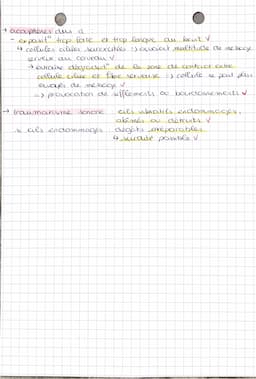 → acouphènes dus à
- exposit° trop forte et trop longue au bruit √
↳ cellules ciliées surexcitées => envoient multitude de message
nerveux au cerveau √
→ entraine dégradat° de la zone de contact entre
cellule ciliée et fibre nerveuse => cellule ne peut plus
envoyer de message √
=> provocation de sifflements ou bourdonnements √
→ traumatisme sonore : cils vibratils endommagés,
abîmés ou détruits √
cils endommagés : dégâts irréparables
↳ surdité possible √